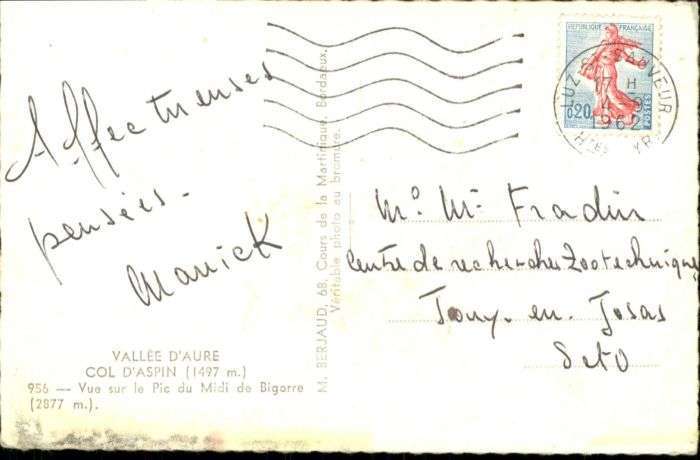 Affectueuses
pensées.
Manick
VALLÉE D'AURE
COL D'ASPIN (1497 m.)
956 — Vue sur le Pic du Midi de Bigorre
(2877 m.).
M. BERJAUD, 68, Cours de la Martinique, Bordeaux.
Véritable photo au bromure.
REPUBLIQUE FRANÇAISE
0,20
POSTES
LUZ-ST-SAUVEUR
17 H
1962
Htes PYR.
Mr Me Fradin
Centre de recherches Zootechniques
Jouy. en. Josas
SetO